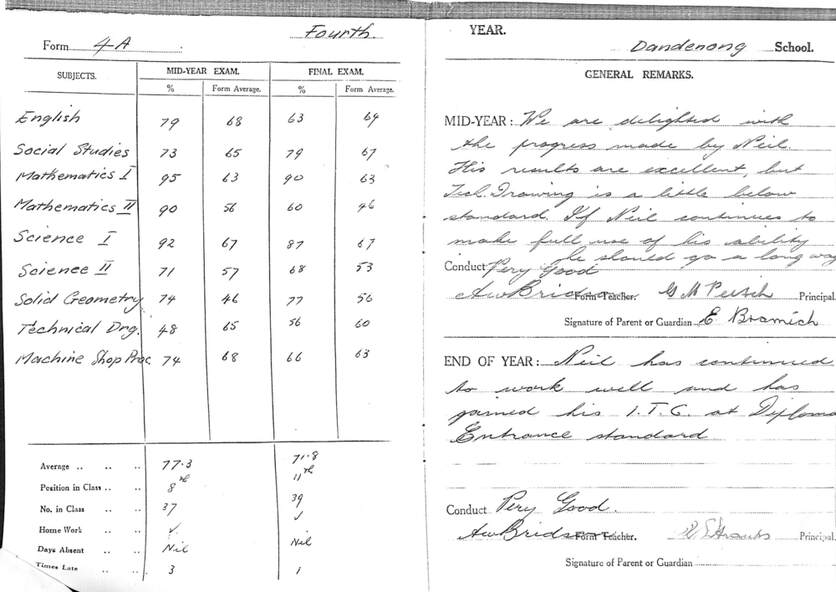 Form 4A
Fourth
SUBJECTS. MID-YEAR EXAM. FINAL EXAM.
% Form Average. % Form Average.
English 79 68 63 64
Social Studies 73 65 79 67
Mathematics I 95 63 90 63
Mathematics II 90 56 60 46
Science I 92 67 87 67
Science II 71 57 68 53
Solid Geometry 74 46 77 56
Technical Drg. 48 65 56 60
Machine Shop Prac 74 68 66 63
Average .. .. .. 77.3 71.8
Position in Class .. .. 8th 11th
No. in Class .. .. 37 39
Home Work .. .. ✓ ✓
Days Absent .. .. Nil Nil
Times Late .. .. 3 1
YEAR.
Dandenong School.
GENERAL REMARKS.
MID-YEAR: We are delighted with
the progress made by Neil.
His results are excellent, but
Tech. Drawing is a little below
standard. If Neil continues to
make full use of his ability
he should go a long way
Conduct Very Good
Form Teacher. Principal.
Signature of Parent or Guardian E Bramich
END OF YEAR: Neil has continued
to work well and has
gained his I.T.C. at Diploma
Entrance standard
Conduct Very Good.
Form Teacher. Principal.
Signature of Parent or Guardian